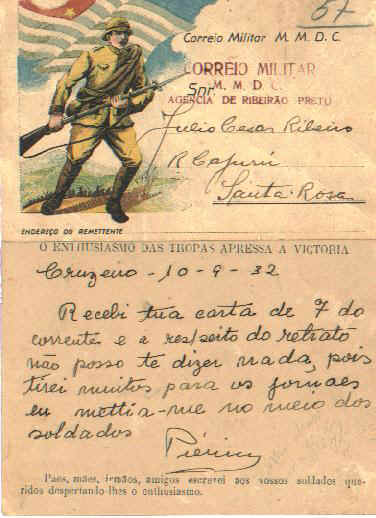 57
Correio Militar M. M. D. C.
CORREIO MILITAR
M. M. D. C.
AGENCIA DE RIBEIRÃO PRETO
Snr.
Julio Cesar Ribeiro
R Cajurú
Santa Rosa
ENDEREÇO DO REMETTENTE
O ENTHUSIASMO DAS TROPAS APRESSA A VICTORIA
Cruzeiro - 10 - 9 - 32
Recebi tua carta de 7 do
corrente e a respeito do retrato
não posso te dizer nada, pois
tirei muitos para os jornaes
eu mettia-me no meio dos
soldados
Paes, mães, irmãos, amigos escrevei aos vossos soldados que-
ridos despertando-lhes o enthusiasmo.